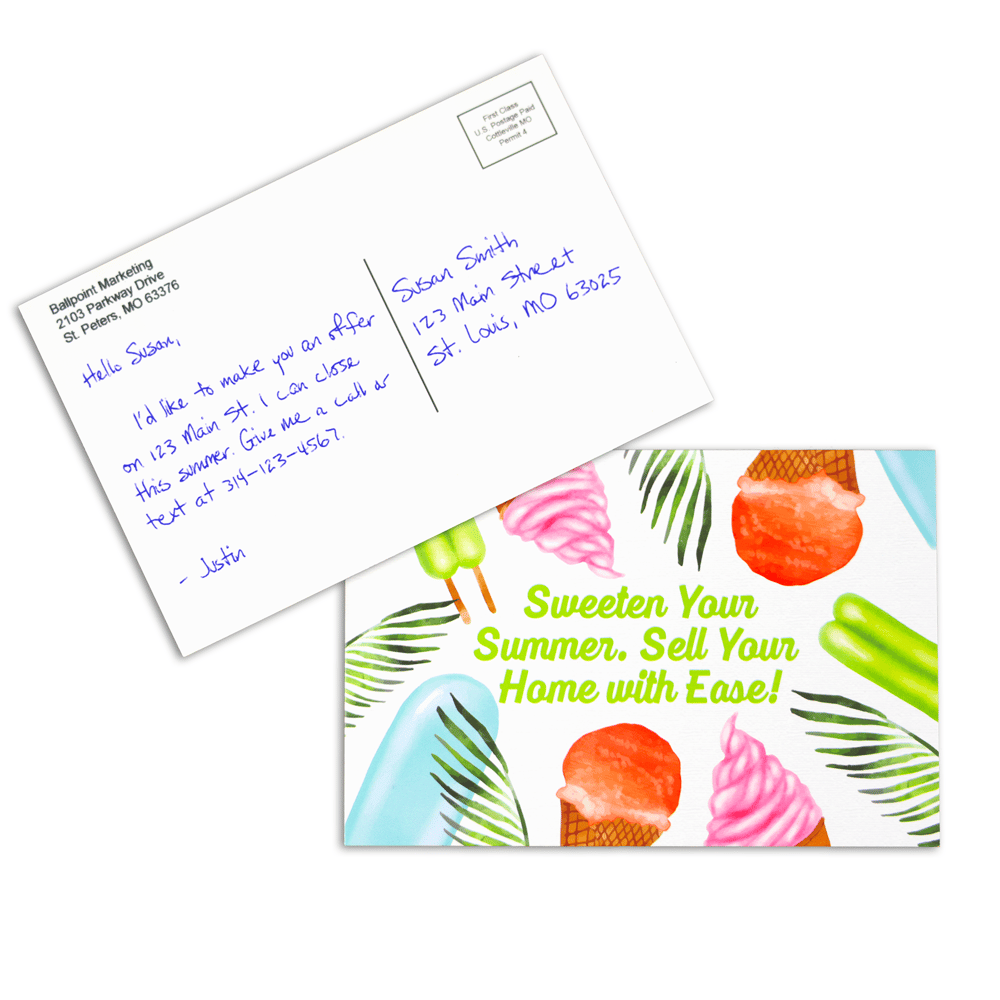 First Class
U.S. Postage Paid
Cottleville MO
Permit 4
Ballpoint Marketing
2103 Parkway Drive
St. Peters, MO 63376
Hello Susan,
I'd like to make you an offer
on 123 Main St. I can close
this summer. Give me a call or
text at 314-123-4567.
- Justin
Susan Smith
123 Main Street
St. Louis, MO 63025
Sweeten Your
Summer. Sell Your
Home with Ease!